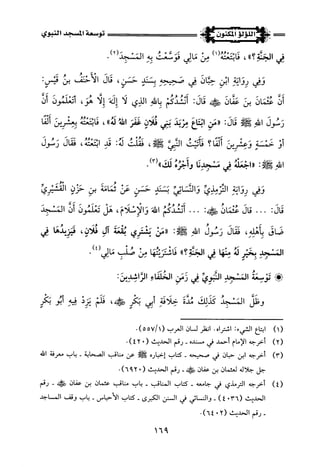 اللؤلؤ المكنون
توسعة المسجد النبوي
فِي الجَنَّةِ؟»، فَابْتَعْتُهُ(١) مِنْ مَالِي فَوَسَّعْتُ بِهِ المَسْجِدَ(٢).
وَفِي رِوَايَةِ ابْنِ حِبَّانَ فِي صَحِيحِهِ بِسَنَدٍ حَسَنٍ، قَالَ الأَحْنَفُ بنُ قَيْسٍ:
أَنَّ عُثْمَانَ بنَ عَفَّانَ ﷺ قَالَ: أَنْشُدُكُمْ بِاللهِ الذِي لَا إِلَهَ إِلَّا هُوَ، أَتَعْلَمُونَ أَنَّ
رَسُولَ اللهِ ﷺ قَالَ: «مَنِ ابْتَاعَ مِرْبَدَ بَنِي فُلَانٍ غَفَرَ اللهُ لَهُ»، فَابْتَعْتُهُ بِعِشْرِينَ أَلْفًا
أَوْ خَمْسَةٍ وَعِشْرِينَ أَلْفًا؟ فَأَتَيْتُ النَّبِيَّ ﷺ، فَقُلْتُ لَهُ: قَدِ ابْتَعْتُهُ، فَقَالَ رَسُولُ
اللهِ ﷺ: «اجْعَلْهُ فِي مَسْجِدِنَا وَأَجْرُهُ لَكَ»(٣).
وَفِي رِوَايَةِ التِّرْمِذِيِّ وَالنَّسَائِيِّ بِسَنَدٍ حَسَنٍ عَنْ ثُمَامَةَ بنِ حَزْنٍ القُشَيْرِيِّ
قَالَ: ... قَالَ عُثْمَانُ ﷺ: ... أَنْشُدُكُمُ اللهَ وَالإِسْلَامَ، هَلْ تَعْلَمُونَ أَنَّ المَسْجِدَ
ضَاقَ بِأَهْلِهِ، فَقَالَ رَسُولُ اللهِ ﷺ: «مَنْ يَشْتَرِي بُقْعَةَ آلِ فُلَانٍ، فَيَزِيدُهَا فِي
المَسْجِدِ بِخَيْرٍ لَهُ مِنْهَا فِي الجَنَّةِ؟» فَاشْتَرَيْتُهَا مِنْ صُلْبِ مَالِي(٤).
تَوْسِعَةُ المَسْجِدِ النَّبَوِيِّ فِي زَمَنِ الخُلَفَاءِ الرَّاشِدِينَ:
وَظَلَّ المَسْجِدُ كَذَلِكَ مُدَّةَ خِلَافَةِ أَبِي بَكْرٍ ﷺ، فَلَمْ يَزِدْ فِيهِ أَبُو بَكْرٍ
(١) ابتاع الشيء: اشتراه. انظر لسان العرب (١/٥٥٧).
(٢) أخرجه الإمام أحمد في مسنده - رقم الحديث (٤٢٠).
(٣) أخرجه ابن حبان في صحيحه - كتاب إخباره ﷺ عن مناقب الصحابة - باب مغفرة الله
جل جلاله لعثمان بن عفان ﷺ - رقم الحديث (٦٩٢٠).
(٤) أخرجه الترمذي في جامعه - كتاب المناقب - باب مناقب عثمان بن عفان ﷺ - رقم
الحديث (٤٠٣٦) - والنسائي في السنن الكبرى - كتاب الأحباس - باب وقف المساجد
- رقم الحديث (٦٤٠٢).
١٦٩